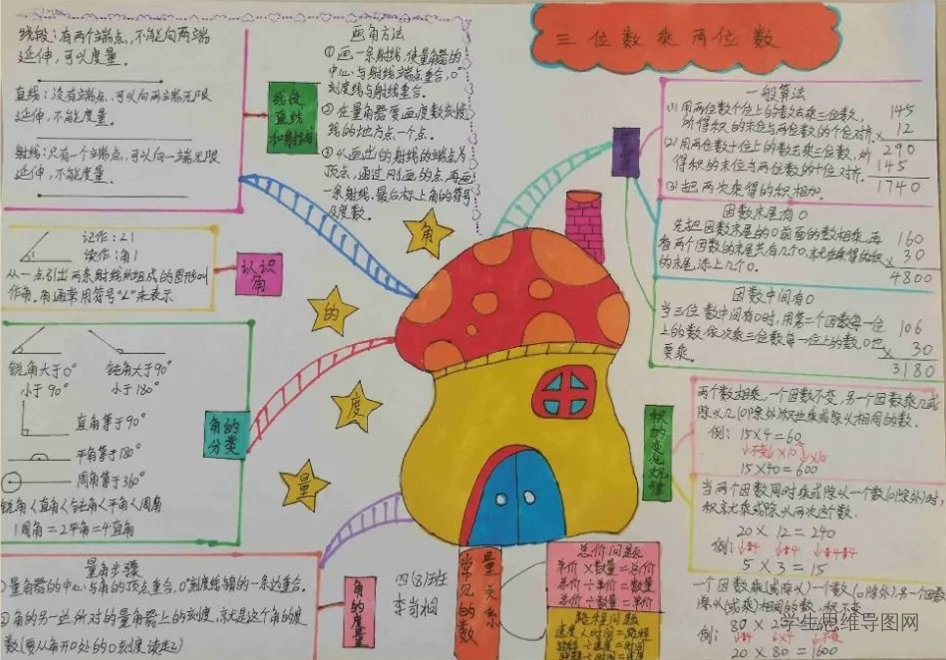 线段：有两个端点，不能向两端
延伸，可以度量。
直线：没有端点，可以向两端无限
延伸，不能度量。
射线：只有一个端点，可以向一端无限
延伸，不能度量。
线段
直线
和射线
画角方法
①画一条射线，使量角器的
中心与射线端点重合，0°
刻度线与射线重合。
②在量角器要画度数刻度
线的地方点一个点。
③以画出的射线的端点为
顶点，通过刚画的点，再画
一条射线，最后标上角的符号
及度数。
三位数乘两位数
一般算法
(1)用两位数个位上的数去乘三位数，
所得积的末位与两位数的个位对齐。
(2)用两位数十位上的数去乘三位数，所
得积的末位与两位数的十位对齐。
(3)把两次乘得的积相加。
145
× 12
290
145
1740
因数末尾有0
先把因数末尾的0前面的数相乘，再
看两个因数的末尾共有几个0，就在乘得的积
的末尾添上几个0。
160
× 30
4800
因数中间有0
当三位数中间有0时，用第二个因数每一位
上的数依次乘三位数每一位上的数，0也
要乘。
106
× 30
3180
记作：∠1
读作：角1
从一点引出两条射线所组成的图形叫
作角，角通常用符号“∠”来表示
认识
角
角
的
度
量
锐角大于0° 钝角大于90°
小于90° 小于180°
直角等于90°
平角等于180°
周角等于360°
锐角<直角<钝角<平角<周角
1周角=2平角=4直角
角的
分类
积的变化规律
两个数相乘，一个因数不变，另一个因数乘几或
除以几(0除外)，积也乘或除以相同的数。
例：15×4=60
↓不变 ↓×10 ↓×10
15×40=600
当两个因数同时乘或除以一个数(0除外)时，
积就乘或除以两次这个数。
20×12=240
例：↓÷4 ↓÷4 ↓÷4÷4
5×3=15
一个因数乘(或除以)一个数(0除外)，另一个因数
除以(或乘)相同的数，积不变
例：
20×80=1600
量角步骤
①量角器的中心与角的顶点重合，0°刻度线与角的一条边重合。
②角的另一边所对的量角器上的刻度，就是这个角的度
数(要从角开口处的0刻度读起)
角的度量
四(8)班
常见的数
量关系
总价问题
单价×数量=总价
总价÷单价=数量
总价÷数量=单价
路程问题
速度×时间=路程
学生思维导图网